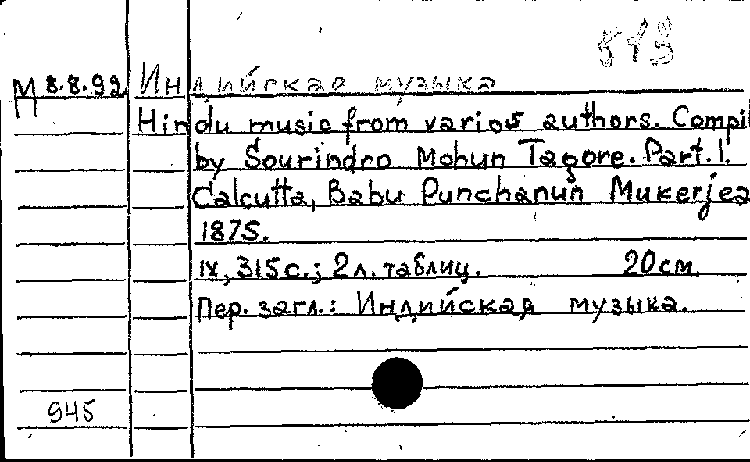 513
М 8.8.92 Индийская музыка
Hindu music from varios authors. Compil
by Sourindro Mohun Tagore. Part. I.
Calcutta, Babu Punchanun Mukerjea
1875.
IX, 315 с.; 2 л. таблиц. 20 см
Пер. загл.: Индийская музыка.
945